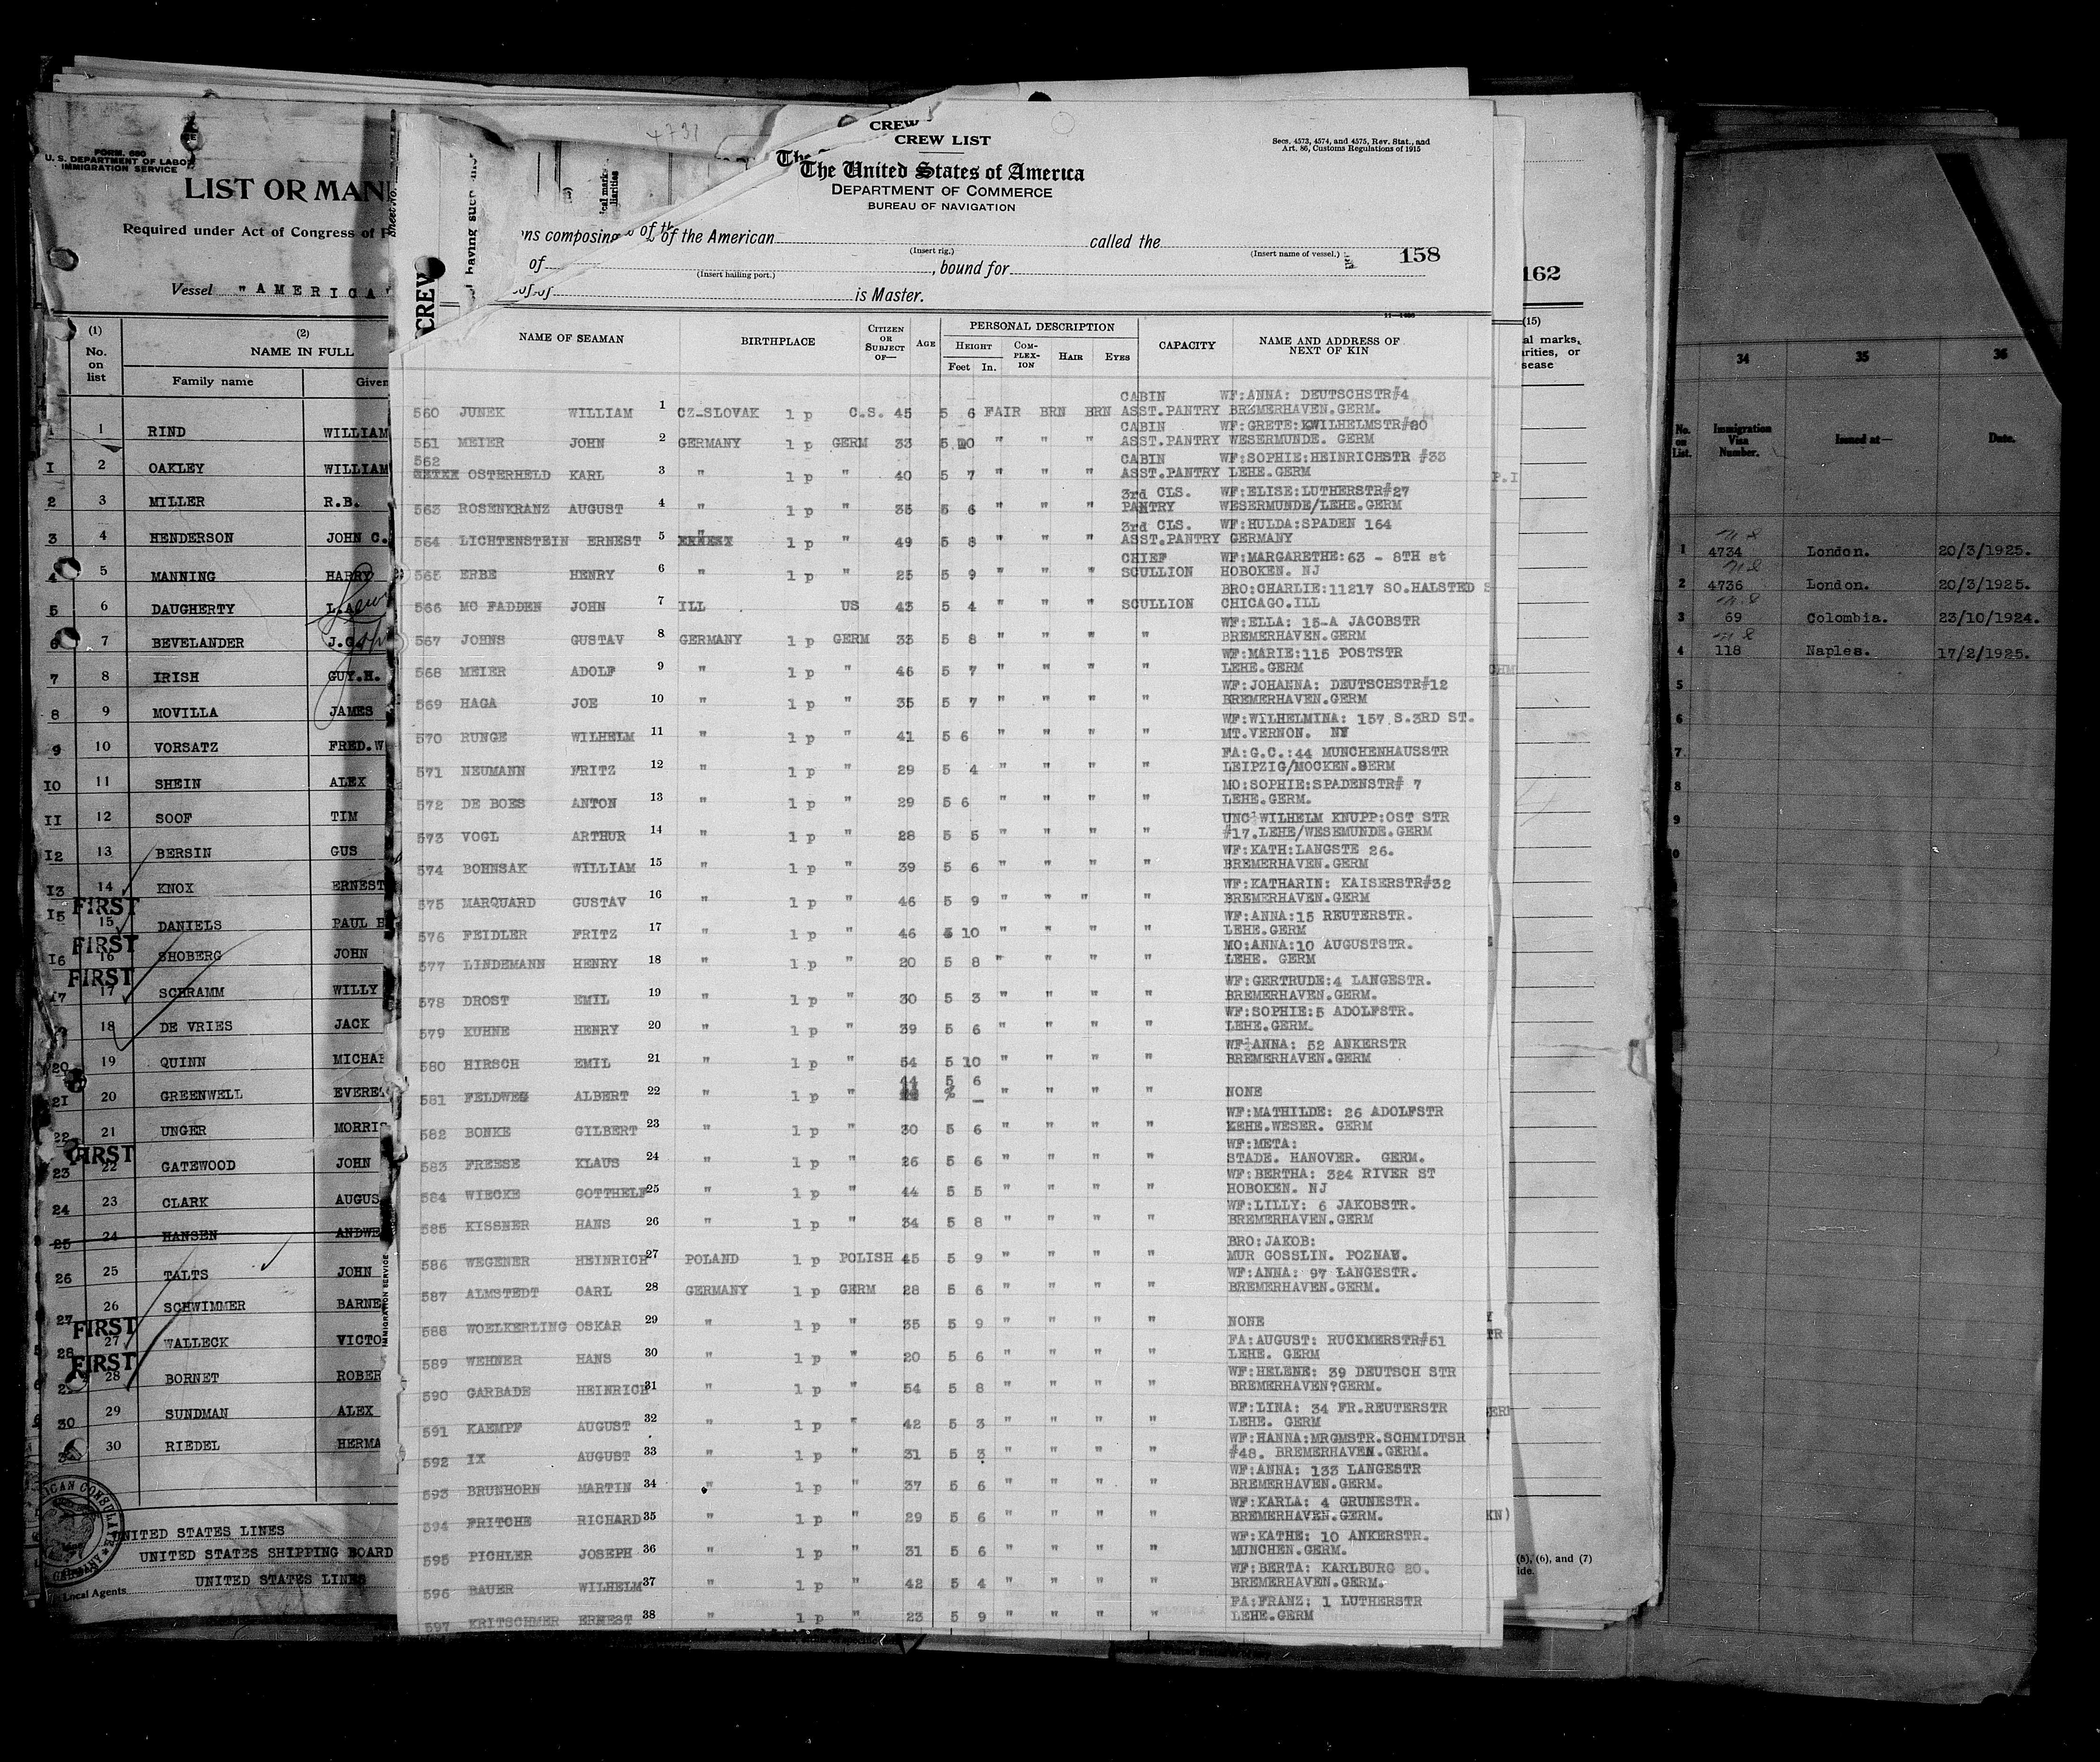 FORM. 680
U. S. DEPARTMENT OF LABOR
IMMIGRATION SERVICE
LIST OR MANI
Required under Act of Congress of F
Vessel "AMERICA"
(1) (2)
No. on list NAME IN FULL
Family name Given
1 1 RIND WILLIAM
I 2 OAKLEY WILLIAM
2 3 MILLER R.B.
3 4 HENDERSON JOHN C.
4 5 MANNING HARRY
5 6 DAUGHERTY L.A.
6 7 BEVELANDER J.G.
7 8 IRISH GUY.H.
8 9 MOVILLA JAMES
9 10 VORSATZ FRED.W
IO 11 SHEIN ALEX
II 12 SOOF TIM
I2 13 BERSIN GUS
I3 14 KNOX ERNEST
FIRST
I5 15 DANIELS PAUL H
FIRST
I6 16 SHOBERG JOHN
FIRST
I7 17 SCHRAMM WILLY
18 DE VRIES JACK
20 19 QUINN MICHAE
21 20 GREENWELL EVERE
22 21 UNGER MORRIS
FIRST
23 22 GATEWOOD JOHN
24 23 CLARK AUGUS
25 24 HANSEN ANDWE
26 25 TALTS JOHN
26 SCHWIMMER BARNE
27 FIRST
27 WALLECK VICTO
28 FIRST
28 BORNET ROBER
29 SUNDMAN ALEX
30 30 RIEDEL HERMA
UNITED STATES LINES
UNITED STATES SHIPPING BOARD
UNITED STATES LINES
Local Agents
IMMIGRATION SERVICE
Sheet No.
4731
CREW
having such
CREW
CREW LIST
Secs. 4573, 4574, and 4575, Rev. Stat., and
Art. 86, Customs Regulations of 1915
The
The United States of America
DEPARTMENT OF COMMERCE
BUREAU OF NAVIGATION
ons composing of the American called the
(Insert rig.) (Insert name of vessel.) 158
of , bound for
(Insert hailing port.)
of is Master.
11—1486
NAME OF SEAMAN BIRTHPLACE CITIZEN OR SUBJECT OF— AGE PERSONAL DESCRIPTION CAPACITY NAME AND ADDRESS OF NEXT OF KIN
HEIGHT COM-PLEX-ION HAIR EYES
Feet In.
CABIN WF:ANNA: DEUTSCHSTR#4
560 JUNEK WILLIAM 1 CZ-SLOVAK 1 p C.S. 45 5 6 FAIR BRN BRN ASST.PANTRY BREMERHAVEN.GERM.
CABIN WF:GRETE:KWILHELMSTR#20
561 MEIER JOHN 2 GERMANY 1 p GERM 33 5 10 " " " ASST.PANTRY WESERMUNDE. GERM
562 CABIN WF:SOPHIE:HEINRICHSTR #33
OSTERHELD KARL 3 " 1 p " 40 5 7 " " " ASST.PANTRY LEHE.GERM
3rd CLS. WF:ELISE:LUTHERSTR#27
563 ROSENKRANZ AUGUST 4 " 1 p " 35 5 6 " " " PANTRY WESERMUNDE/LEHE.GERM
3rd CLS. WF:HULDA:SPADEN 164
564 LICHTENSTEIN ERNEST 5 " 1 p " 49 5 8 " " " ASST.PANTRY GERMANY
CHIEF WF:MARGARETHE:63 - 8TH st
565 ERBE HENRY 6 " 1 p " 25 5 9 " " " SCULLION HOBOKEN. NJ
BRO:CHARLIE:11217 SO.HALSTED S
566 MC FADDEN JOHN 7 ILL US 43 5 4 " " " SCULLION CHICAGO.ILL
WF:ELLA: 15-A JACOBSTR
567 JOHNS GUSTAV 8 GERMANY 1 p GERM 33 5 8 " " " " BREMERHAVEN.GERM
WF:MARIE:115 POSTSTR
568 MEIER ADOLF 9 " 1 p " 46 5 7 " " " " LEHE.GERM
WF:JOHANNA: DEUTSCHSTR#12
569 HAGA JOE 10 " 1 p " 35 5 7 " " " " BREMERHAVEN.GERM
WF:WILHELMINA: 157 S.3RD ST.
570 RUNGE WILHELM 11 " 1 p " 41 5 6 " " " " MT.VERNON. NY
FA:G.C.:44 MUNCHENHAUSSTR
571 NEUMANN FRITZ 12 " 1 p " 29 5 4 " " " " LEIPZIG/MOCKEN.GERM
MO:SOPHIE:SPADENSTR# 7
572 DE BOES ANTON 13 " 1 p " 29 5 6 " " " " LEHE.GERM.
UNC:WILHELM KNUPP:OST STR
573 VOGL ARTHUR 14 " 1 p " 28 5 5 " " " " #17.LEHE/WESEMUNDE.GERM
WF:KATH:LANGSTE 26.
574 BOHNSAK WILLIAM 15 " 1 p " 39 5 6 " " " " BREMERHAVEN.GERM
WF:KATHARIN: KAISERSTR#32
575 MARQUARD GUSTAV 16 " 1 p " 46 5 9 " " " " BREMERHAVEN.GERM
WF:ANNA:15 REUTERSTR.
576 FEIDLER FRITZ 17 " 1 p " 46 5 10 " " " " LEHE.GERM
MO:ANNA:10 AUGUSTSTR.
577 LINDEMANN HENRY 18 " 1 p " 20 5 8 " " " " LEHE. GERM
WF:GERTRUDE:4 LANGESTR.
578 DROST EMIL 19 " 1 p " 30 5 3 " " " " BREMERHAVEN.GERM.
WF:SOPHIE:5 ADOLFSTR.
579 KUHNE HENRY 20 " 1 p " 39 5 6 " " " " LEHE.GERM.
WF:ANNA: 52 ANKERSTR
580 HIRSCH EMIL 21 " 1 p " 54 5 10 " " " " BREMERHAVEN.GERM
44 5 6
581 FELDWEG ALBERT 22 " 1 p " " " " " NONE
WF:MATHILDE: 26 ADOLFSTR
582 BONKE GILBERT 23 " 1 p " 30 5 6 " " " " KEHE.WESER. GERM
WF:META:
583 FREESE KLAUS 24 " 1 p " 26 5 6 " " " " STADE. HANOVER. GERM.
WF:BERTHA: 324 RIVER ST
584 WIECKE GOTTHELF 25 " 1 p " 44 5 5 " " " " HOBOKEN. NJ
WF:LILLY: 6 JAKOBSTR.
585 KISSNER HANS 26 " 1 p " 34 5 8 " " " " BREMERHAVEN.GERM
BRO:JAKOB:
586 WEGENER HEINRICH 27 POLAND 1 p POLISH 45 5 9 " " " " MUR GOSSLIN. POZNAU.
WF:ANNA: 97 LANGESTR.
587 ALMSTEDT CARL 28 GERMANY 1 p GERM 28 5 6 " " " " BREMERHAVEN.GERM.
588 WOELKERLING OSKAR 29 " 1 p " 35 5 9 " " " " NONE
FA:AUGUST: RUCKMERSTR#51
589 WEHNER HANS 30 " 1 p " 20 5 6 " " " " LEHE. GERM
WF:HELENE: 39 DEUTSCH STR
590 GARBADE HEINRICH 31 " 1 p " 54 5 8 " " " " BREMERHAVEN?GERM.
WF:LINA: 34 FR.REUTERSTR
591 KAEMPF AUGUST 32 " 1 p " 42 5 3 " " " " LEHE. GERM
WF:HANNA:MRGMSTR.SCHMIDTSR
592 IX AUGUST 33 " 1 p " 31 5 3 " " " " #48. BREMERHAVEN.GERM.
WF:ANNA: 133 LANGESTR
593 BRUNHORN MARTIN 34 " 1 p " 37 5 6 " " " " BREMERHAVEN.GERM.
WF:KARLA: 4 GRUNESTR.
594 FRITCHE RICHARD 35 " 1 p " 29 5 6 " " " " BREMERHAVEN.GERM.
WF:KATHE: 10 ANKERSTR.
595 PICHLER JOSEPH 36 " 1 p " 31 5 6 " " " " MUNCHEN.GERM.
WF:BERTA: KARLBURG 20.
596 BAUER WILHELM 37 " 1 p " 42 5 4 " " " " BREMERHAVEN.GERM.
FA:FRANZ: 1 LUTHERSTR
597 KRITSCHMER ERNEST 38 " 1 p " 23 5 9 " " " " LEHE.GERM
162
(15)
al marks,
rities, or
sease
P.I
KN)
(5), (6), and (7)
ide.
34 35 36
No. on List. Immigration Visa Number. Issued at— Date.
1 4734 London. 20/3/1925.
2 4736 London. 20/3/1925.
3 69 Colombia. 23/10/1924.
4 118 Naples. 17/2/1925.
5
6
7
8
9
0